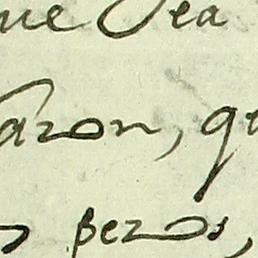 ue Sea
azon, qu
s pezos,